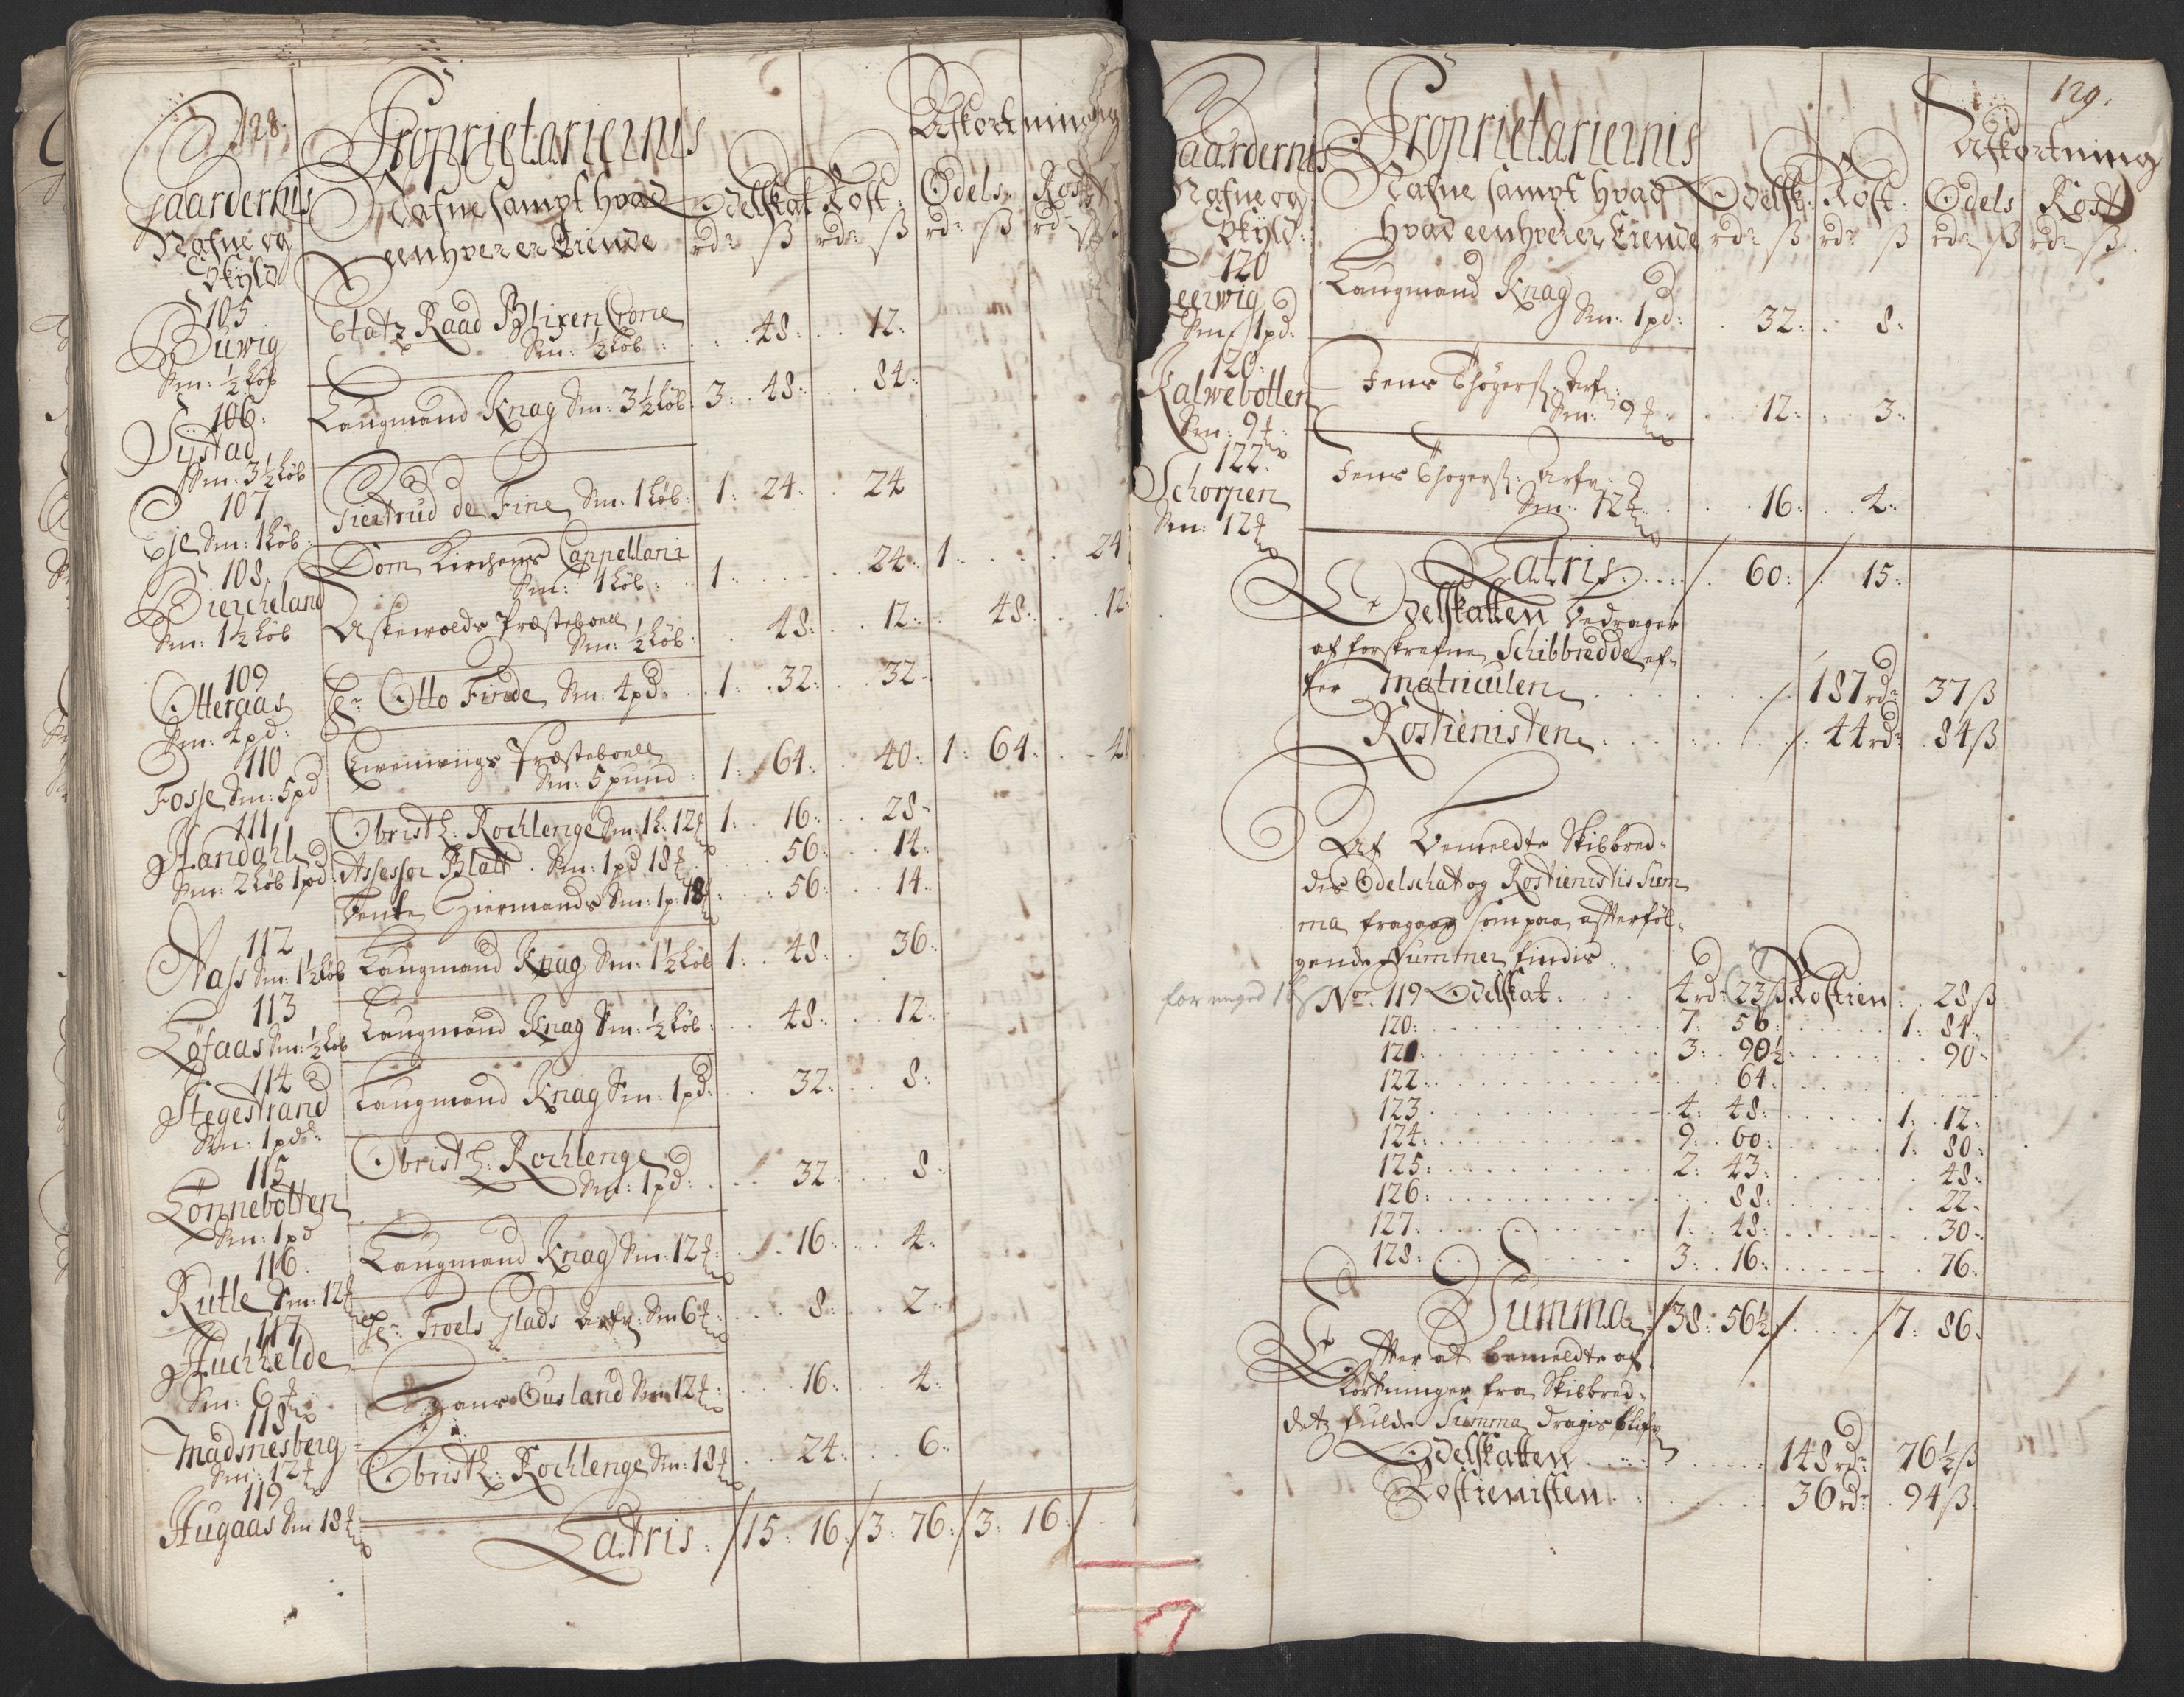 128.
Gaardernis
Nafne og
Skyld
Proprietariernis
Nafne sampt hvad
eenhver er Eiende
Odelskat
rdr ß
Rost:
rdr ß
Afkortning
Odels
rdr ß
Rost
rdr ß
105
Buwig
Sm: ½ Løb
Etatz Raad Blixen Crone
Sm: ½ Løb : . . 48: . . 12:
106:
Systad
Sm: 3½ Løb
Laugmand Knag Sm: 3½ Løb. 3: 48: . . 84:
107
Eje Sm: 1 Løb:
Giertrud de Fine Sm: 1 Løb: 1: 24: . 24
108
Biercheland
Sm: 1½ Løb
Dom Kirchens Cappellani
Sm: 1 Løb: . . 1 . . . . 24: 1 . . . . 24
Askewolds Præsteboell
Sm: ½ Løb: . 48: . . 12: . 48: . . 12:
109
Otteraas
Sm: 4 pd:
Hr Otto Finde Sm: 4 pd: . . 1: . 32: . . 32.
110
Fosse Sm: 5 pd
Ewenwiigs Præsteboell
Sm: 5 pund : 1: 64: . 40: 1: 64: . . 4
111
Handahl
Sm: 2 Løb 1 pd
Obristl: Rochlenge Sm: 1 L: 12 1: . 16: . . 28-
Assessor Blatt . Sm: 1 pd 18 . . 56: . . 14:
Bente Giermands Sm: 1 p: 18 . . 56: . . 14.
112
Nass Sm: 1½ Løb
Laugmand Knag Sm: 1½ Løb 1: . 48: . . 36:
113
Løfaas Sm: ½ Løb
Laugmand Knag Sm: ½ Løb . . 48: . . 12:
114
Stegestrand
Sm: 1 pd:
Laugmand Knag Sm: 1 pd: . . 32: . . 8:
115
Lønnebotten
Sm: 1 pd
Obristl: Rochlenge
Sm: 1 pd: . . . 32 . . . 8:
116.
Rutle Sm: 12
Laugmand Knag Sm: 12 : . . 16: . . 4:
117
Huchelde
Sm: 6
Hr Troels Glads Arfv: Sm 6 : . . . 8: . . 2:
118
Madsnesberg
Sm: 12
Hans Ousland Sm 12 : . . . 16: . . 4:
119
Hugaas Sm 18
Obristl: Rochlenge Sm: 18 . . 24: . . 6:
Latris. / 15: 16: / 3: 76: / 3: 16: /
129.
aardernis
Nafne og
Skyld:
Proprietariernis
Nafne sampt hvad
hvad eenhver er Eiende
Odelsk:
rdr ß
Rost:
rdr ß
Afkortning
Odels
rdr ß
Rost
rdr ß
120
eerwig
Sm: 1 pd:
Laugmand Knag
Sm: 1 pd: . . 32: . . 8:
120:
Kalwebotten
Sm: 9
Jens Thøgers: Arfv:
Sm: 9 . . . 12: . . 3:
122:
Schorpen
Sm: 12
Jens Thøgers: Arfv:
Sm: 12 . . . 16: . . 4:
Latris . . . . / . 60: / . 15:
Odelskatten bedrager
af forskrefne Schibbredde ef-
ter Matriculen . . . . . . . / . 187 rdr 37 ß
Rostienisten . . . . . . . . /: 44 rdr . 84 ß
Af bemeldte Skibbred-
dis Odelschat og Rostienistis Sum
ma fragaar som paa effterføl-
gende Nummer findis
Nor. 119 Odelskat: . . . . 4 rdr 23 ß Rostien: . 28 ß
120: . . . . . 7: 56: . . . . 1: 84:
121: . . . . . 3: . 90½ . . . . . 90-
122: . . . . . . . 64: . . . . .
123 . . . . . . 4: 48: . . . . 1: . 12:
124: . . . . . 9: . 60: . . . . 1: 80:
125: . . . . . 2: 43: . . . . . 48:
126: . . . . . . . 88: . . . . . 22-
127: . . . . . 1: 48: . . . . . 30-
128: . . . . . 3: . 16: . . . . . 76:
Summa / 38: 56½ / . . . . / 7: 86.
Effter at bemeldte af-
kortninger fra Skibbred-
detz fulde Summa dragis blifv
Odelskatten . . . . . . . 148 rdr 76½ ß
Rostienisten . . . . . . . 36 rdr . 94 ß